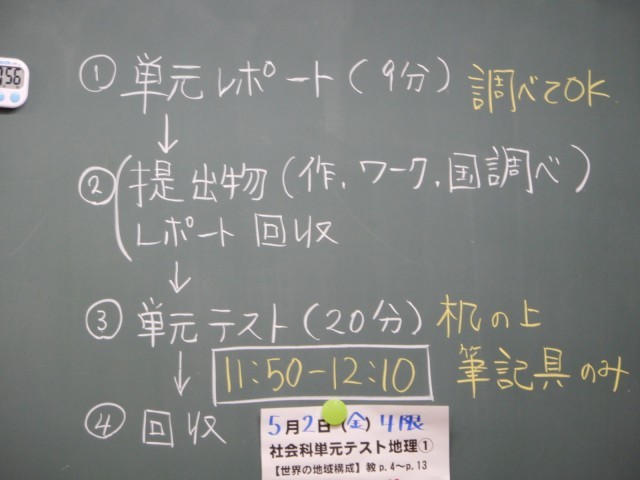 :56
① 単元レポート(9分) 調べてOK
↓
② 提出物(作、ワーク、国調べ)
レポート 回収
↓
③ 単元テスト(20分) 机の上
筆記具のみ
↓ 11:50-12:10
④ 回収
5月2日(金)4限
社会科単元テスト地理①
【世界の地域構成】教p.4~p.13